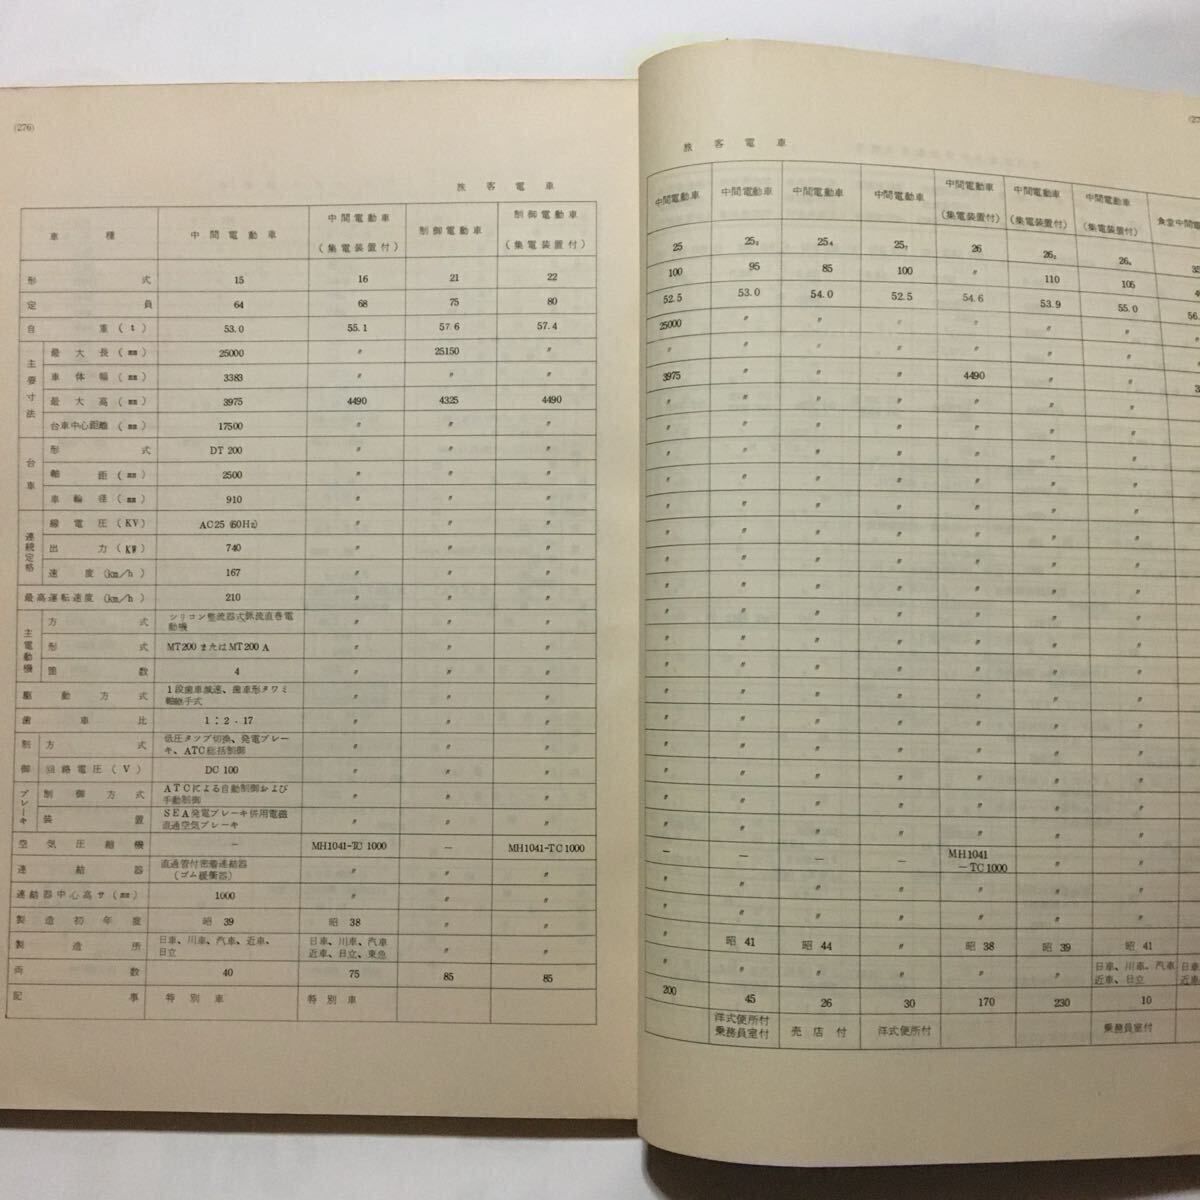 (276)
旅客電車
車種 中間電動車 中間電動車(集電装置付) 制御電動車 制御電動車(集電装置付)
形式 15 16 21 22
定員 64 68 75 80
自重(t) 53.0 55.1 57.6 57.4
主要寸法 最大長(mm) 25000 〃 25150 〃
車体幅(mm) 3383 〃 〃 〃
最大高(mm) 3975 4490 4325 4490
台車中心距離(mm) 17500 〃 〃 〃
台車 形式 DT200 〃 〃 〃
軸距(mm) 2500 〃 〃 〃
車輪径(mm) 910 〃 〃 〃
連続定格 線電圧(KV) AC25(60Hz) 〃 〃 〃
出力(KW) 740 〃 〃 〃
速度(km/h) 167 〃 〃 〃
最高運転速度(km/h) 210 〃 〃 〃
主電動機 方式 シリコン整流器式脈流直巻電動機 〃 〃 〃
形式 MT200またはMT200A 〃 〃 〃
箇数 4 〃 〃 〃
駆動方式 1段歯車減速、歯車形タワミ軸継手式 〃 〃 〃
歯車比 1:2.17 〃 〃 〃
制御 方式 低圧タツプ切換、発電ブレーキ、ATC総括制御 〃 〃 〃
回路電圧(V) DC100 〃 〃 〃
ブレーキ 制御方式 ATCによる自動制御および手動制御 〃 〃 〃
装置 SEA発電ブレーキ併用電磁直通空気ブレーキ 〃 〃 〃
空気圧縮機 － MH1041-TC1000 － MH1041-TC1000
連結器 直通管付密着連結器(ゴム緩衝器) 〃 〃 〃
連結器中心高サ(mm) 1000 〃 〃 〃
製造初年度 昭39 昭38 〃 〃
製造所 日車、川車、汽車、近車、日立 日車、川車、汽車近車、日立、東急 〃 〃
両数 40 75 85 85
記事 特別車 特別車
旅客電車
中間電動車 中間電動車 中間電動車 中間電動車 中間電動車(集電装置付) 中間電動車(集電装置付) 中間電動車(集電装置付) 食堂中間電
25 25₃ 25₄ 25₇ 26 26₂ 26₄ 35
100 95 85 100 〃 110 105
52.5 53.0 54.0 52.5 54.6 53.9 55.0 56.
25000 〃 〃 〃 〃 〃 〃
〃 〃 〃 〃 〃 〃 〃
3975 〃 〃 〃 4490 〃 〃 3
〃 〃 〃 〃 〃 〃 〃
〃 〃 〃 〃 〃 〃 〃
〃 〃 〃 〃 〃 〃 〃
〃 〃 〃 〃 〃 〃 〃
〃 〃 〃 〃 〃 〃 〃
〃 〃 〃 〃 〃 〃 〃
〃 〃 〃 〃 〃 〃 〃
〃 〃 〃 〃 〃 〃 〃
〃 〃 〃 〃 〃 〃 〃
〃 〃 〃 〃 〃 〃 〃
〃 〃 〃 〃 〃 〃 〃
〃 〃 〃 〃 〃 〃 〃
〃 〃 〃 〃 〃 〃 〃
〃 〃 〃 〃 〃 〃 〃
〃 〃 〃 〃 〃 〃 〃
〃 〃 〃 〃 〃 〃 〃
〃 〃 〃 〃 〃 〃 〃
〃 〃 〃 〃 〃 〃 〃
－ － － － MH1041－TC1000 〃 〃
〃 〃 〃 〃 〃 〃 〃
〃 〃 〃 〃 〃 〃 〃
〃 昭41 昭44 〃 昭38 昭39 昭41
〃 〃 〃 〃 〃 〃 日車、川車、汽車近車、日立 日車、近車、
200 45 26 30 170 230 10
洋式便所付乗務員室付 売店付 洋式便所付 乗務員室付